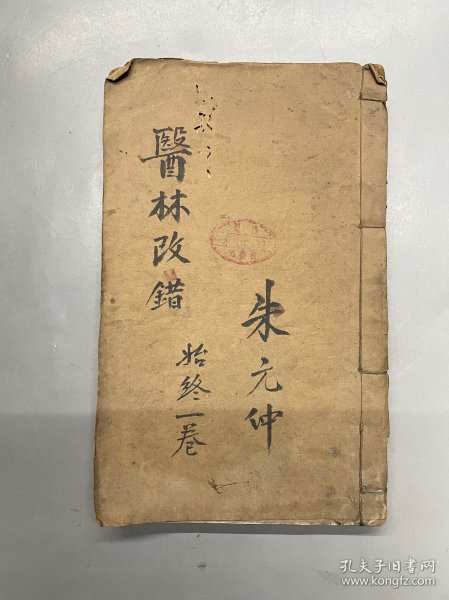 醫林改錯
始終一卷
朱元仲
孔夫子旧书网
www.kongfz.com